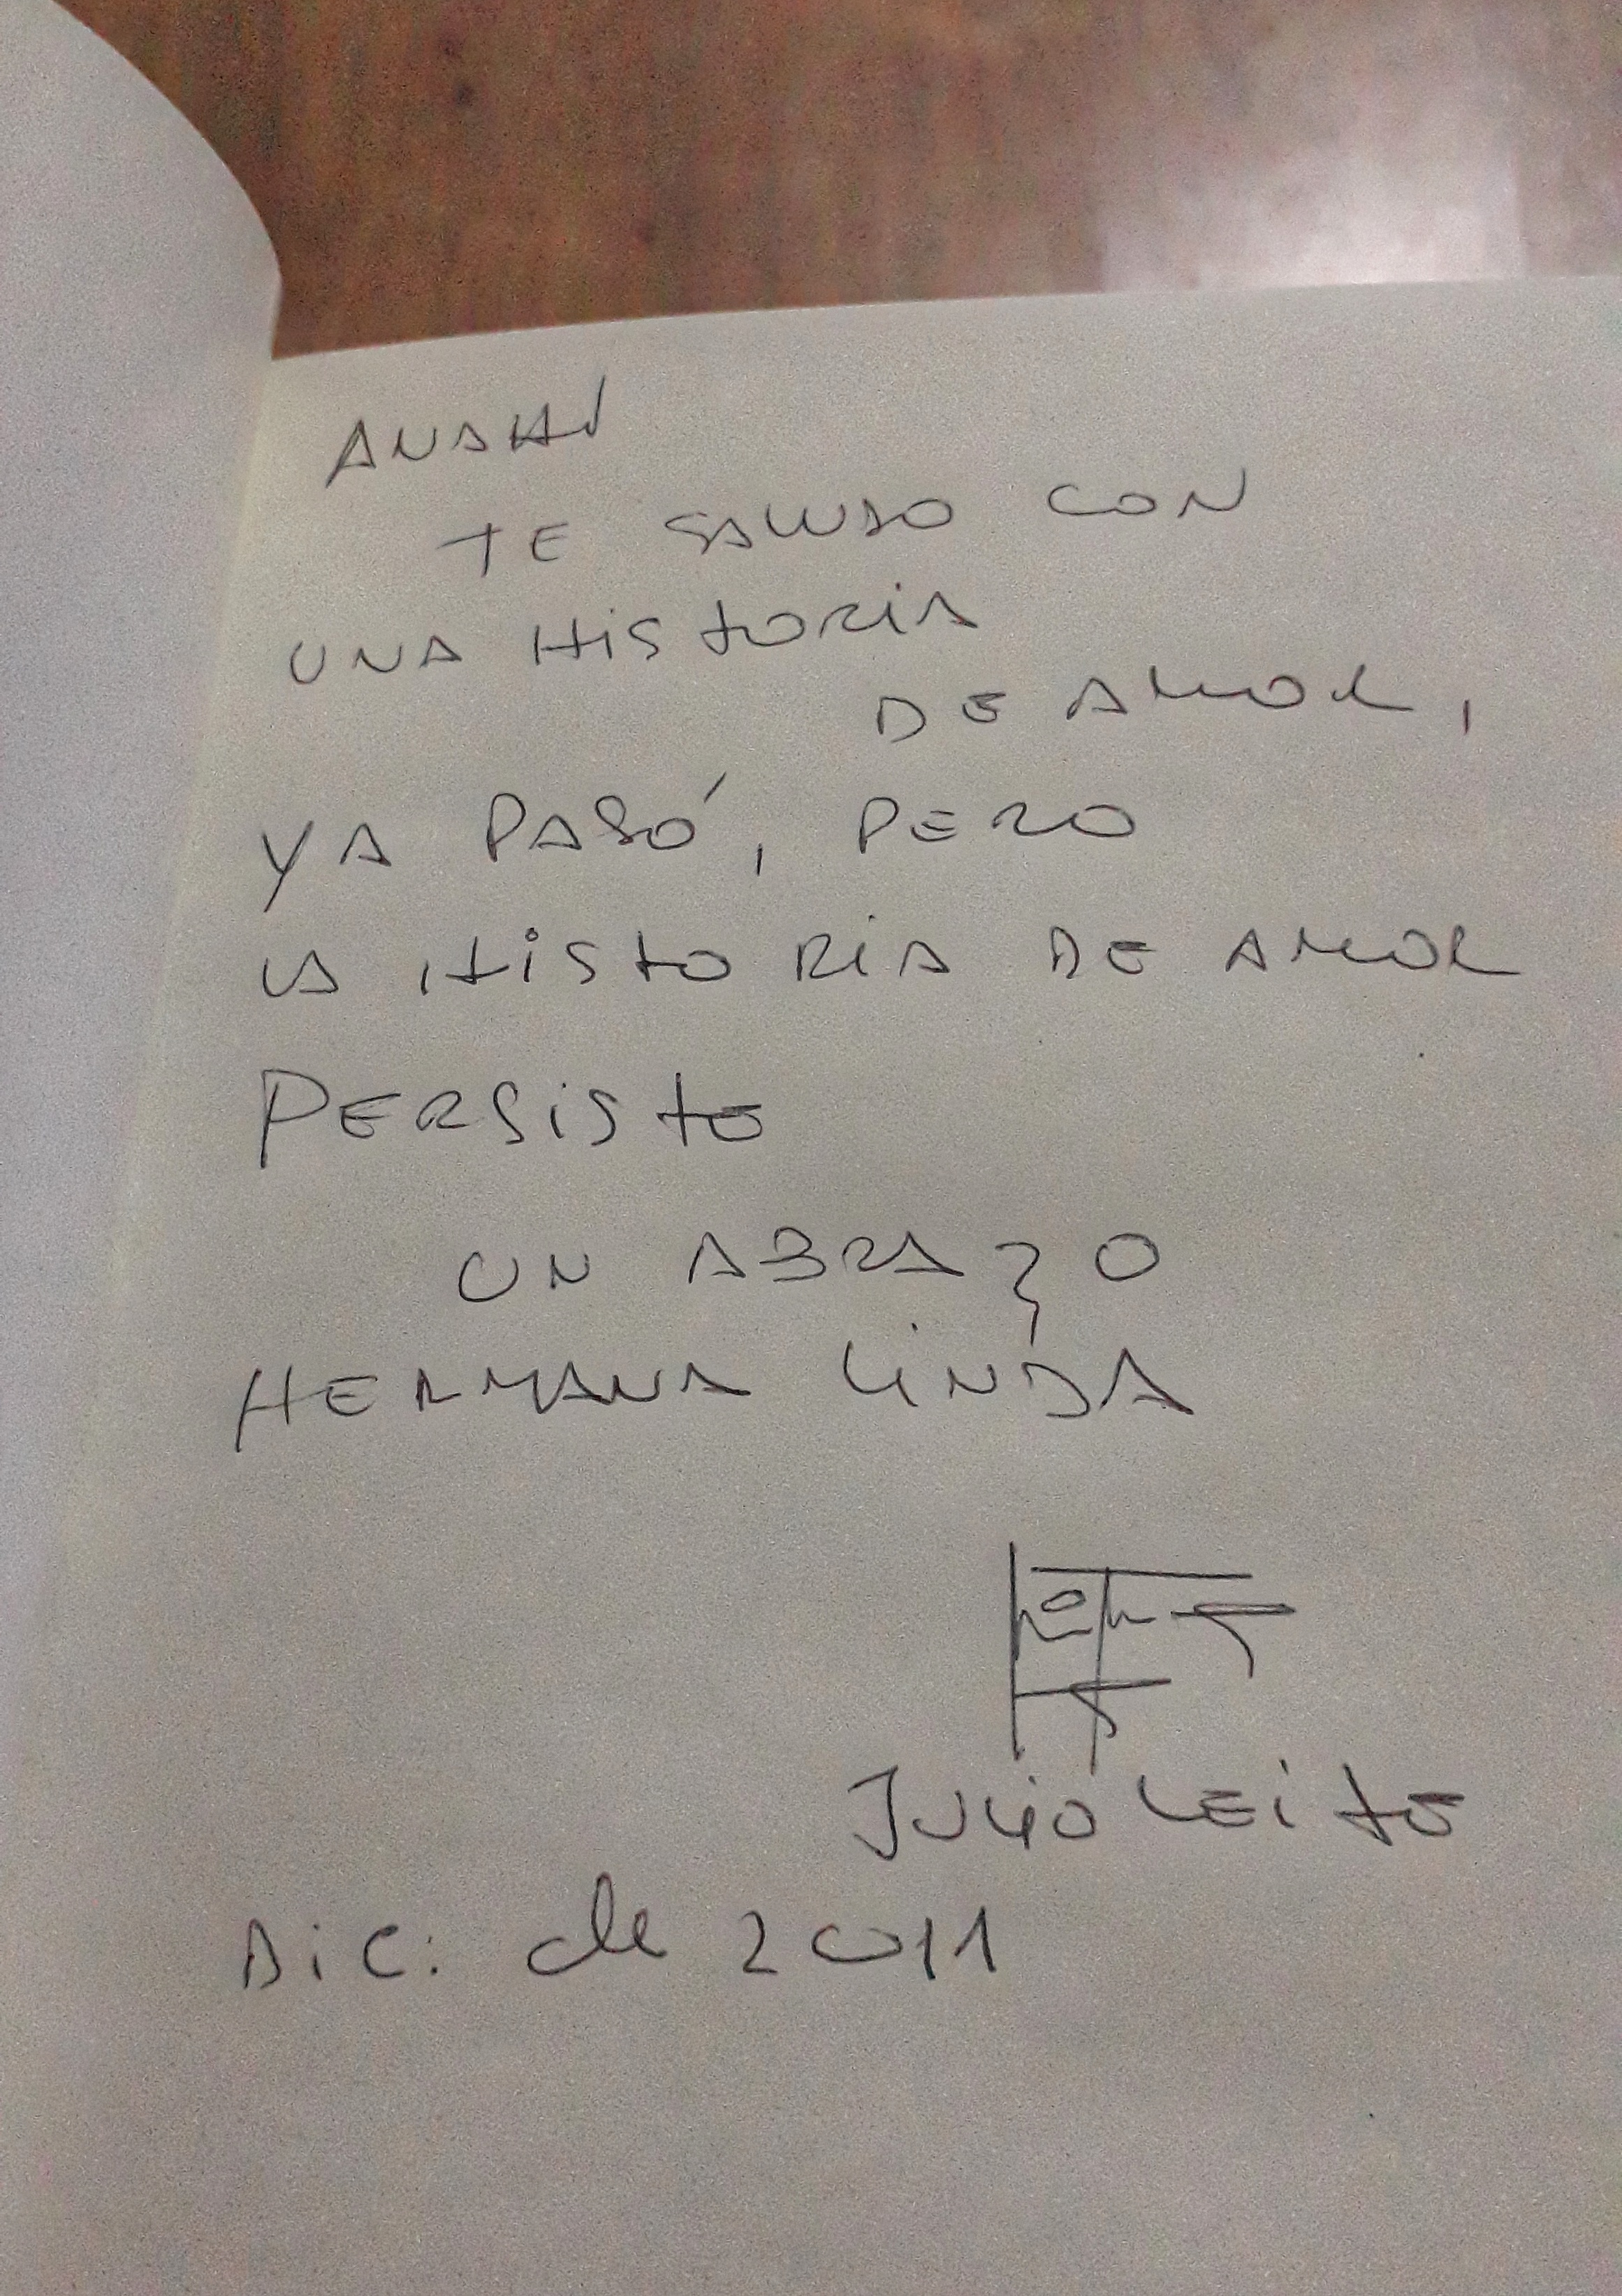 ANAHÍ
TE SALUDO CON
UNA HISTORIA
DE AMOR,
YA PASÓ, PERO
LA HISTORIA DE AMOR
PERSISTE
UN ABRAZO
HERMANA LINDA
JULIO LEITE
DIC: de 2011